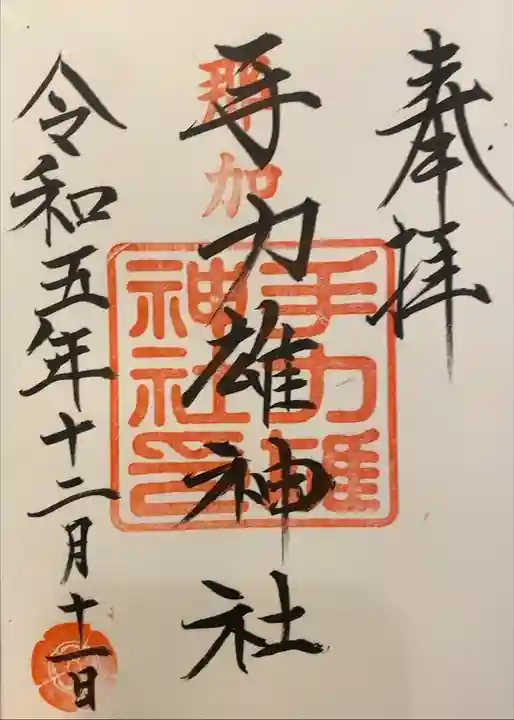 奉拝
那加
手力雄神社
手力雄
神社印
令和五年十二月十一日